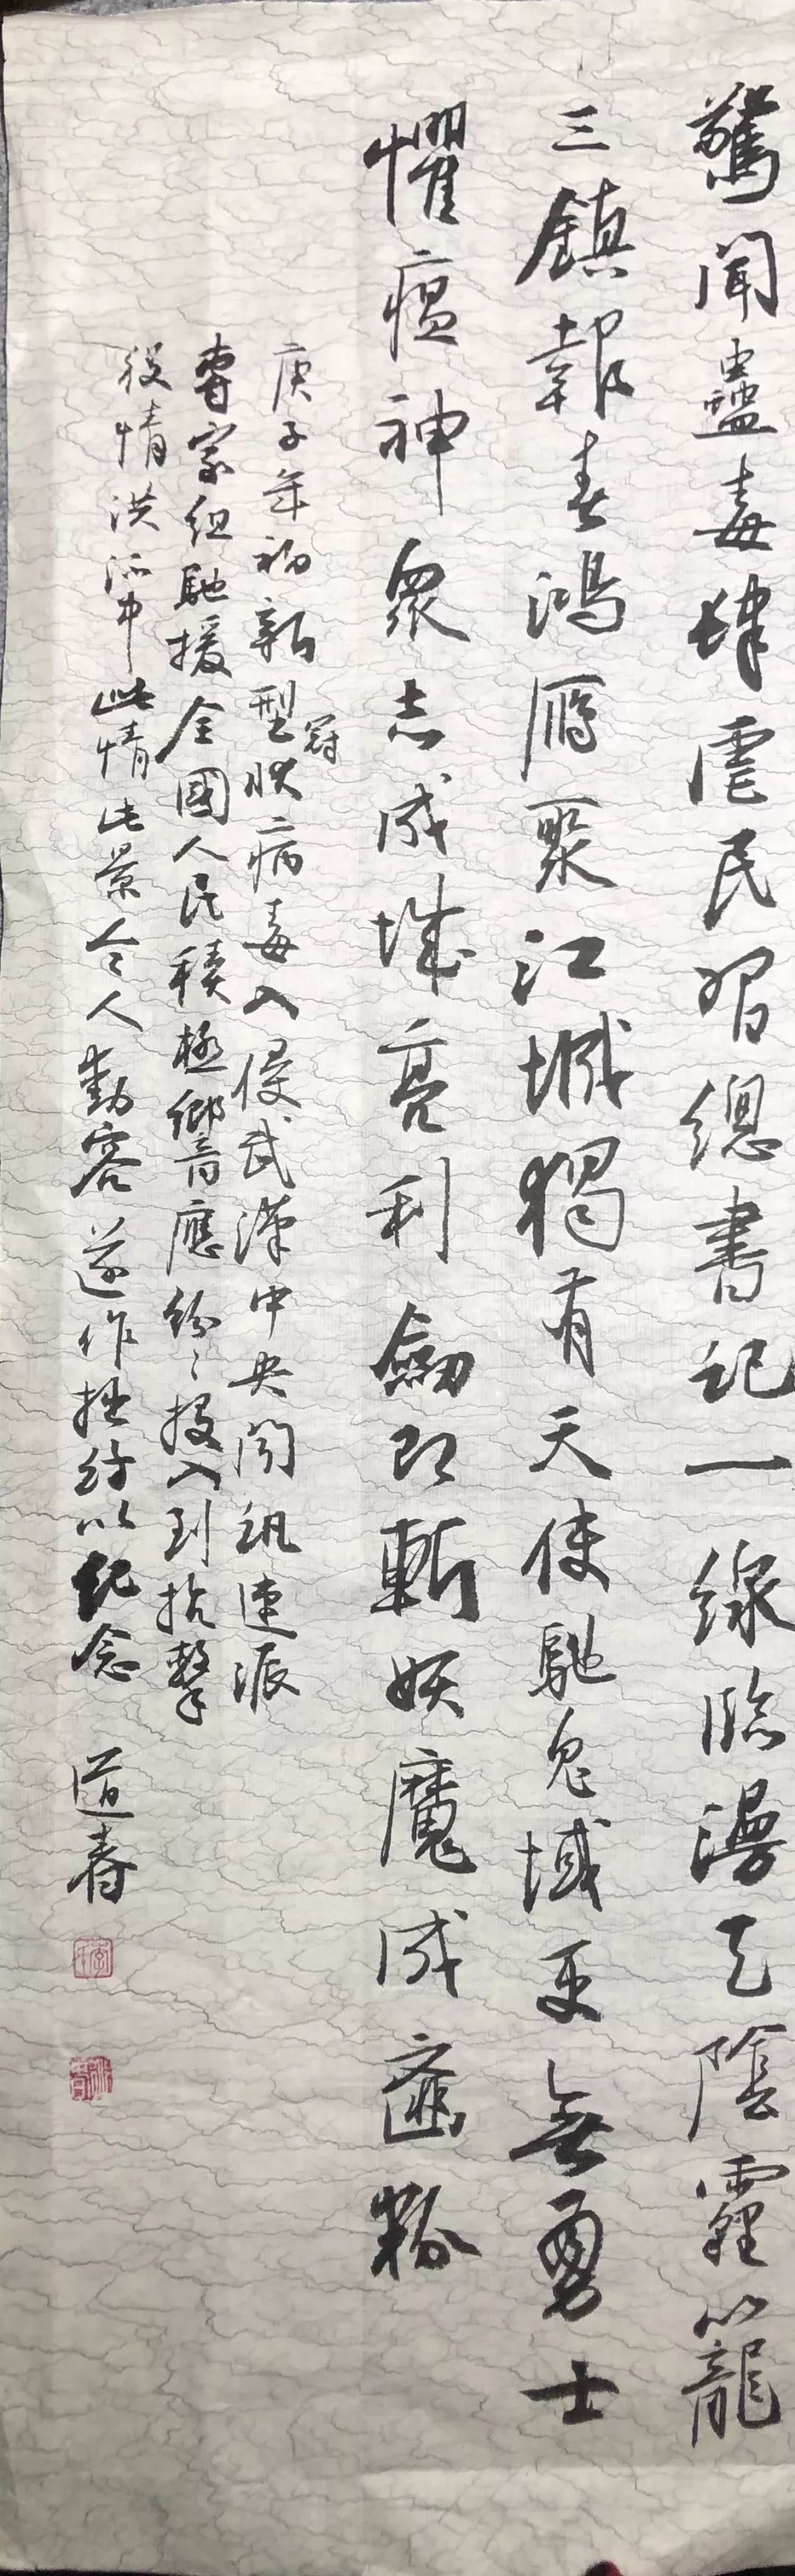 驚聞蠱毒肆虐民習總書記一線臨漫天陰霾籠
三鎮報春鴻雁聚江城獨有天使馳鬼域更無勇士
懼瘟神眾志成城亮利劍即斬妖魔成齏粉
庚子年初新型冠狀病毒入侵武漢中央聞訊速派
專家組馳援全國人民積極響應紛紛投入到抗擊
役情洪流中此情此景令人動容遂作拙詩以紀念
道春